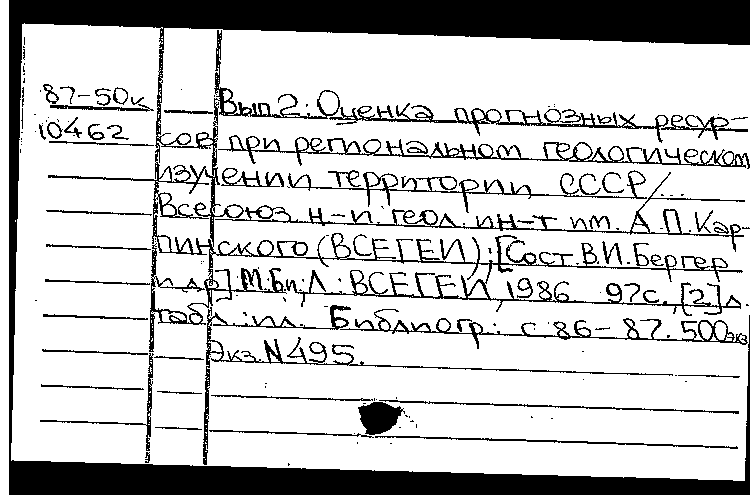 87-50к Вып. 2: Оценка прогнозных ресур-
10462 сов при региональном геологическом
изучении территории СССР/...
Всесоюз. н-и. геол. ин-т им. А.П. Кар-
пинского (ВСЕГЕИ); [Сост. В.И. Бергер
и др]. М.би; Л.: ВСЕГЕИ, 1986 97с., [2] л.
табл.: ил. Библиогр.: с. 86-87. 500 экз
Экз. N 495.